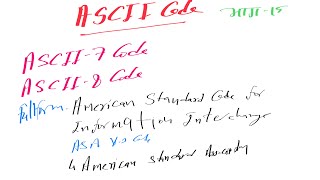 ASCII Code
ASCII-7 Code
ASCII-8 Code
Fullform - American Standard Code for
Information Interchange
American Standard